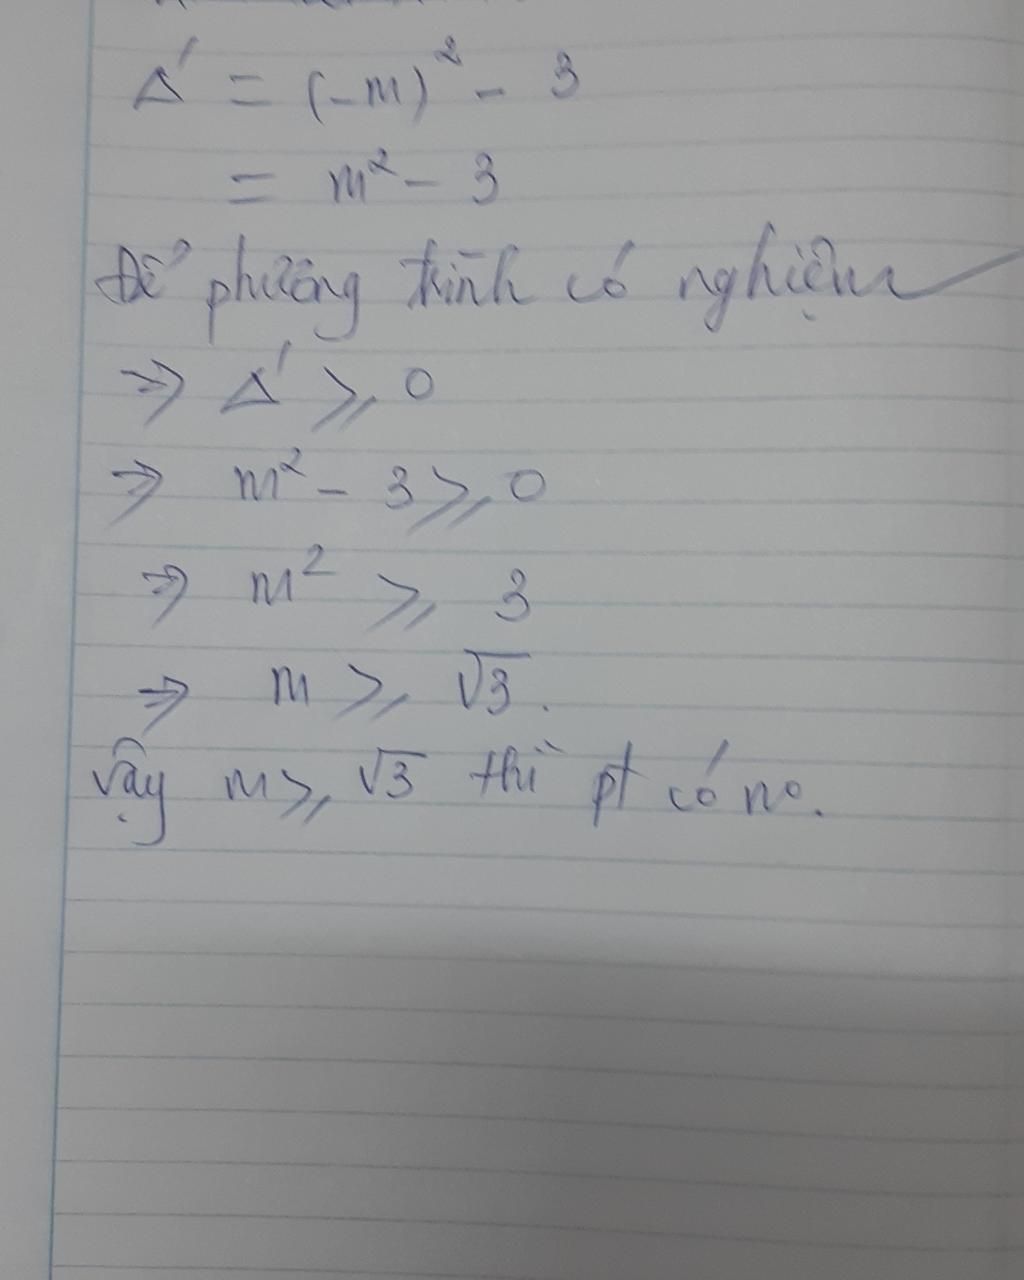 Δ' = (-m)² - 3
= m² - 3
Để phương trình có nghiệm
⇒ Δ' ⩾ 0
⇒ m² - 3 ⩾ 0
⇒ m² ⩾ 3
⇒ m ⩾ √3.
Vậy m ⩾ √3 thì pt có no.